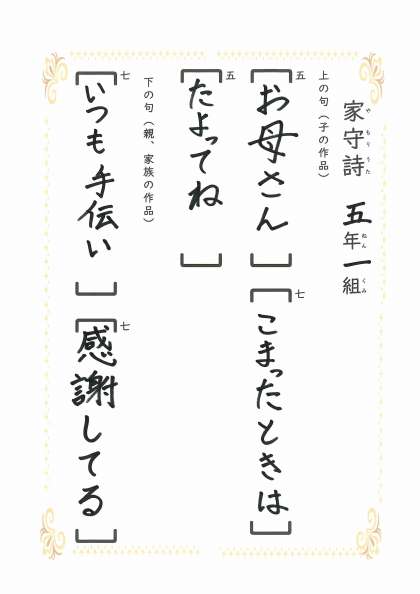 家守詩 五年一組
やもりうた ねん くみ
上の句(子の作品)
五
お母さん
七
こまったときは
五
たよってね
下の句(親、家族の作品)
七
いつも手伝い
七
感謝してる